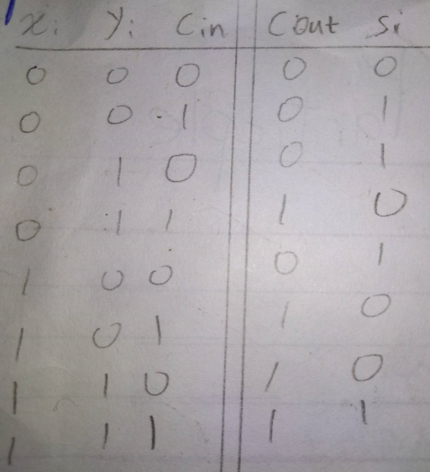 xi yi Cin Cout Si
0 0 0 0 0
0 0 1 0 1
0 1 0 0 1
0 1 1 1 0
1 0 0 0 1
1 0 1 1 0
1 1 0 1 0
1 1 1 1 1